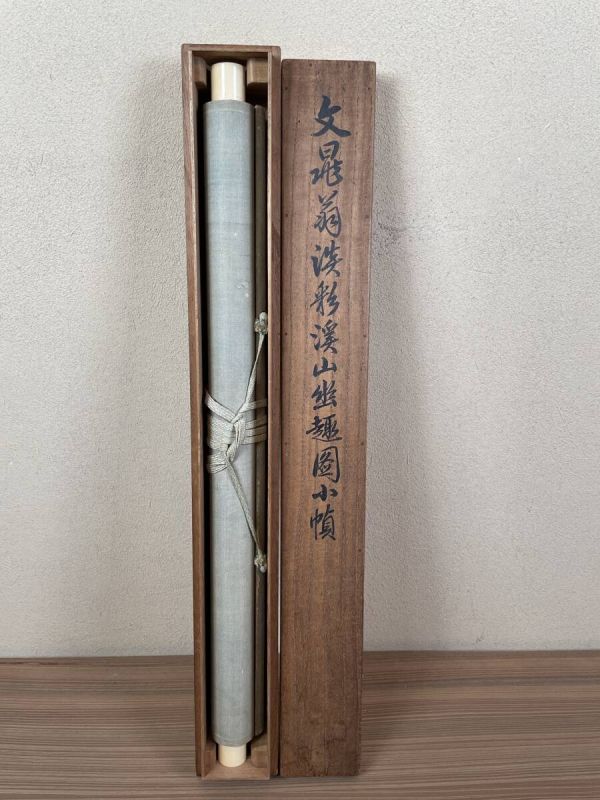 文晁翁淡彩溪山幽趣圖小幀